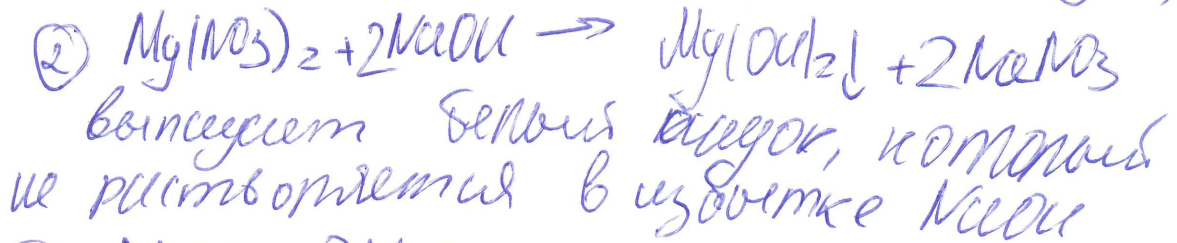 ② Mg(NO3)2 + 2NaOH → Mg(OH)2↓ + 2NaNO3
выпадает белый осадок, который
не растворяется в избытке NaOH